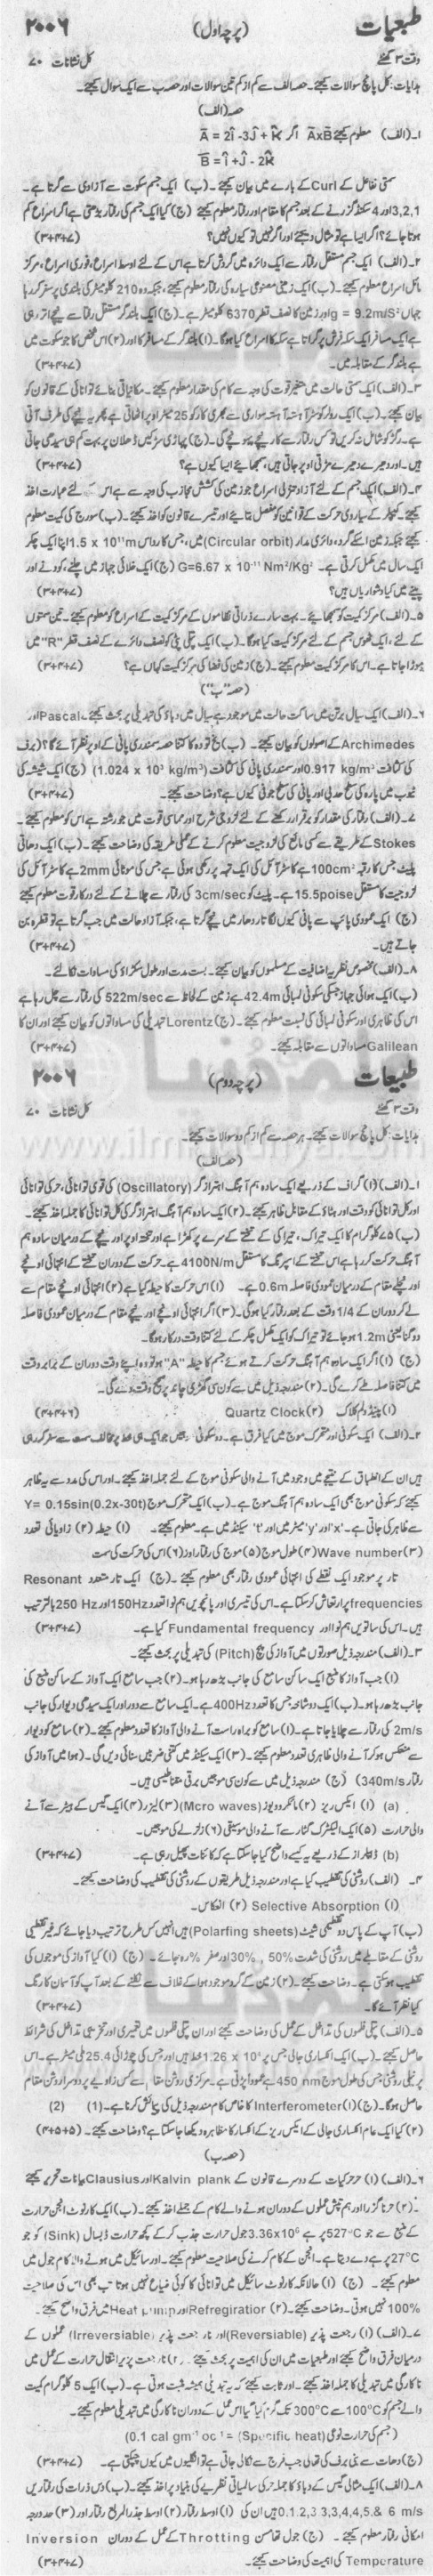 طبعیات (پرچہ اول) ۲۰۰۶
وقت ۳ گھنٹے کل نشانات ۷۰
ہدایات: کل پانچ سوالات کیجئے۔ حصہ الف سے کم از کم تین سوالات اور حصہ ب سے ایک سوال کیجئے۔
حصہ (الف)
۱۔ (الف) معلوم کیجئے A̅xB̅ اگر A̅ = 2î -3Ĵ + k̂
B̅ = î +Ĵ - 2k̂
کے Curl کے بارے میں بیان کیجئے۔ (ب) ایک جسم سکوت سے آزادی سے گرتا ہے۔
3,2,1 اور 4 سیکنڈ گزرنے کے بعد جسم کا مقام اور رفتار معلوم کیجئے (ج) کیا ایک جسم کی رفتار بڑھتی ہے اگر اسراع کم
ہوتا جائے؟ اگر ایسا ہے تو مثال دیجئے اور اگر نہیں تو کیوں نہیں؟ (۳+۴+۷)
۲۔ (الف) ایک جسم مستقل رفتار سے ایک دائرہ میں گردش کرتا ہے اس کے لئے اوسط اسراع، فوری اسراع، مرکز
مائل اسراع معلوم کیجئے۔ (ب) ایک زمینی مصنوعی سیارہ کی رفتار معلوم کیجئے، جبکہ وہ 210 کلومیٹر کی بلندی پر سفر کر رہا
جہاں g = 9.2m/S² اور زمین کا نصف قطر 6370 کلومیٹر ہے۔ (ج) ایک بلند گر مستقل رفتار سے نیچے اتر رہی
ہے ایک مسافر ایک سکہ فرش پر گراتا ہے سکہ کا اسراع کیا ہوگا۔ (۱) بلند گر کے مسافر کا اور (۲) اس شخص کا جو سکوت میں
ہے بلند گر کے مقابلہ میں۔ (۳+۴+۷)
بیان کیجئے۔ (ب) ایک رولر کوسٹر آہستہ آہستہ سواری سے بھری کار کو 25 میٹر اوپر اٹھاتی ہے پھر یہ نیچے کی طرف آتی
ہے۔ رگڑ کو شامل نہ کریں تو کس رفتار سے کار نیچے پہونچے گی۔ (ج) پہاڑی سڑکیں ڈھلان پر بہت کم ہی سیدھی جاتی
ہیں۔ اور دھیرے دھیرے مڑتی اوپر جاتی ہیں، سمجھائیے ایسا کیوں ہے؟ (۳+۴+۷)
۴۔ (الف) ایک جسم کے لئے آزادانہ اسراع جو زمین کی کشش مجاذب کی وجہ سے ہے اس کے لئے عبارت اخذ
کیجئے۔ کیپلر کے سیاروی حرکت کے قوانین کو مفصل بتائیے اور تیسرے قانون کو اخذ کیجئے۔ (ب) سورج کی کمیت معلوم
کیجئے جبکہ زمین اسکے گرد، دائری مدار (Circular orbit) میں، جس کا رداس 1.5 x 10¹¹m اپنا ایک چکر
ایک سال میں مکمل کرتی ہے۔ G=6.67 x 10⁻¹¹ Nm²/Kg² (ج) ایک خلائی جہاز میں چلنے، کودنے اور
پینے میں کیا دشواریاں ہیں؟ (۳+۴+۷)
۵۔ (الف) مرکز کمیت کو سمجھائیے۔ بہت سارے ذراتی نظاموں کے مرکز کمیت کے اسراع کو معلوم کیجئے۔ تین سمتوں
کے لئے، ایک ٹھوس جسم کے لئے مرکز کمیت کیا ہوگا۔ (ب) ایک پتلی پٹی کو نصف دائرے کے نصف قطر "R" میں
موڑا جاتا ہے۔ اس کا مرکز کمیت معلوم کیجئے۔ (ج) زمین کی فضا کی مرکز کمیت کہاں ہے؟ (۳+۴+۷)
(حصہ "ب")
۶۔ (الف) ایک سیال برتن میں ساکت حالت میں موجود ہے سیال میں دباؤ کی تبدیلی پر بحث کیجئے۔ Pascal اور
Archimedes کے اصولوں کو بیان کیجئے۔ (ب) یخ تودہ کا کتنا حصہ سمندری پانی کے اوپر نظر آئے گا؟ (برف
کی کثافت 0.917 kg/m³ اور سمندری پانی کی کثافت 1.024 x 10³ kg/m³) (ج) ایک شیشہ کی
ٹیوب میں پارہ کی سطح محدبی اور پانی کی سطح جوفی کیوں ہے؟ وضاحت کیجئے۔ (۳+۴+۷)
۷۔ (الف) رفتار کی مقدار کو برقرار رکھنے کے لئے لزوجی شرح اور مماسی قوت میں جو رشتہ ہے اس کو معلوم کیجئے۔
Stokes کے طریقے سے کسی مائع کی لزوجیت معلوم کرنے کے عملی طریقہ کی وضاحت کیجئے۔ (ب) ایک دھاتی
پلیٹ جس کا رقبہ 100cm² ہے کاسٹر آئل کی ایک تہہ پر رکھی ہوئی ہے جس کی موٹائی 2mm ہے کاسٹر آئل کی
لزوجیت کا مستقل 15.5poise ہے۔ پلیٹ کو 3cm/sec کی رفتار سے چلانے کے لئے درکار قوت معلوم کیجئے
(ج) ایک عمودی پائپ سے پانی کیوں لگاتار دھار میں نیچے گرتا ہے، جبکہ آزاد حالت میں جب گرتا ہے تو قطرہ بن
جاتے ہیں۔
۸۔ (الف) مخصوص نظریہ اضافیت کے مسلموں کو بیان کیجئے۔ بست مدت اور طول سکڑاؤ کی مساوات نکالئے۔
(ب) ایک ہوائی جہاز جسکی سکونی لمبائی 42.4m ہے زمین کے لحاظ سے 522m/sec کی رفتار سے چل رہا ہے
اس کی ظاہری اور سکونی لمبائی کی نسبت معلوم کیجئے۔ (ج) Lorentz تبدیلی کی مساواتوں کو بیان کیجئے اور ان کا
Galilean مساواتوں سے مقابلہ کیجئے۔ (۳+۴+۷)
طبیعات (پرچہ دوم) ۲۰۰۶
وقت ۳ گھنٹے کل نشانات ۷۰
ہدایات: کل پانچ سوالات کیجئے۔ ہر حصہ سے کم از کم دو سوالات کیجئے۔
(حصہ الف)
۱۔ (الف) (۱) گراف کے ذریعے ایک سادہ ہم آہنگ اہتزاز گر (Oscillatory) کی قوی توانائی، حرکی توانائی
اور کل توانائی کو وقت اور ہٹاؤ کے مقابل ظاہر کیجئے۔ (۲) ایک سادہ ہم آہنگ اہتزاز گر کی کل توانائی کا جملہ اخذ کیجئے۔
(ب) ۷۵ کلوگرام کا ایک تیراک، تیراکی کے تختے کے سرے پر کھڑا ہے اور تختہ اوپر اور نیچے کے درمیان سادہ ہم
آہنگ حرکت کر رہا ہے اس تختے کے اسپرنگ کا مستقل 4100N/m ہے۔ حرکت کے دوران تختے کے انتہائی اونچے
اور نچلے مقام کے درمیان عمودی فاصلہ 0.6m ہے۔ (۱) اس حرکت کا حیطہ کیا ہے (۲) انتہائی اونچے مقام سے
لے کر دوران کے 1/4 وقت کے بعد رفتار کیا ہوگی۔ (۳) اگر انتہائی اونچے اور نیچے مقام کے درمیان عمودی فاصلہ
دو گنا یعنی 1.2m ہو جائے تو تیراک کو ایک مکمل چکر کے لئے کتنا وقت درکار ہوگا۔
(ج) (۱) اگر ایک سادہ ہم آہنگ حرکت کرتے ہوئے جسم کا حیطہ "A" ہو تو وہ اپنے وقت دوران کے برابر وقت
میں کتنا فاصلہ طے کرے گی۔ (۲) مندرجہ ذیل میں سے کون سی گھڑی چاند پر صحیح وقت دے گی۔
(۱) پینڈولم کلاک (۲) Quartz Clock (۴+۴+۶)
۲۔ (الف) ایک سکونی اور متحرک موج میں کیا فرق ہے۔ دو سکونی جو ایک ہی خط پر مخالف سمت سے سفر کر رہی
ہیں ان کے انطباق کے نتیجے میں وجود میں آنے والی سکونی موج کے لئے جملہ اخذ کیجئے۔ اور اس کی مدد سے یہ ظاہر
کیجئے کہ سکونی موج بھی ایک سادہ ہم آہنگ موج ہے۔ (ب) ایک متحرک موج Y= 0.15sin(0.2x-30t)
سے ظاہر کی جاتی ہے۔ 'x' اور 'y' میٹر میں اور 't' سیکنڈ میں ہے۔ معلوم کیجئے۔ (۱) حیطہ (۲) زاویائی تعدد
(۳) Wave number (۴) طول موج (۵) موج کی رفتار اور (۶) اس کی حرکت کی سمت
تار پر موجود ایک نقطے کی انتہائی عمودی رفتار بھی معلوم کیجئے۔ (ج) ایک تار متعدد Resonant
frequencies پر ارتعاش کر سکتا ہے۔ اس کی تیسری اور پانچویں ہم نوا تعدد 150Hz اور 250 Hz بالترتیب
ہیں۔ اس کی ساتویں ہم نوا اور Fundamental frequency کیا ہے۔ (۳+۴+۷)
۳۔ (الف) مندرجہ ذیل صورتوں میں آواز کی پچ (Pitch) کی تبدیلی پر بحث کیجئے۔
(۱) جب آواز کا منبع ایک ساکن سامع کی جانب بڑھ رہا ہو۔ (۲) جب سامع ایک آواز کے ساکن منبع کی
جانب بڑھ رہا ہو۔ (ب) ایک دو شاخہ جس کا تعدد 400Hz ہے۔ ایک سامع سے دور اور ایک سیدھی دیوار کی جانب
2m/s کی رفتار سے چلایا جاتا ہے۔ (۱) سامع کو براہ راست آنے والی آواز کا تعدد معلوم کیجئے۔ (۲) سامع کو دیوار
سے منعکس ہو کر آنے والی ظاہری تعدد معلوم کیجئے۔ (۳) ایک سیکنڈ میں کتنی ضربیں سنائی دیں گی۔ (ہوا میں آواز کی
رفتار 340m/s) (ج) مندرجہ ذیل میں سے کون سی موجیں برقی مقناطیسی ہیں۔
(a) (۱) ایکس ریز (۲) مائکرو ویوز (Mcro waves) (۳) لیزر (۴) ایک گیس کے ہیٹر سے آنے
والی حرارت (۵) ایک الیکٹرک گٹار سے آنے والی موسیقی (۶) زلزلے کی موجیں۔
(b) ڈوپلر اثر کے ذریعے یہ کیسے واضح کیا جا سکتا ہے کہ کائنات پھیل رہی ہے۔ (۳+۴+۷)
۴۔ (الف) روشنی کی تقطیب کیا ہے اور مندرجہ ذیل طریقوں سے روشنی کی تقطیب کی وضاحت کیجئے۔
(۱) Selective Absorption (۲) انعکاس۔
(ب) آپ کے پاس دو تقطیبی شیٹ (Polarfing sheets) ہیں انہیں کس طرح ترتیب دیا جائے کہ غیر تقطیبی
روشنی کے مقابلے میں روشنی کی شدت 50% ,30% اور صفر % رہ جائے۔ (ج) (۱) کیا آواز کی موجوں کی
تقطیب ہو سکتی ہے۔ وضاحت کیجئے۔ (۲) زمین کے گرد موجود ہوا کے غلاف سے نکلنے کے بعد آپ کو آسمان کا رنگ
کیا نظر آئے گا۔ (۳+۴+۷)
۵۔ (الف) پتلی فلموں کی تداخل کے عمل کی وضاحت کیجئے اور ان پتلی فلموں میں تعمیری اور تخریبی تداخل کی شرائط
حاصل کیجئے۔ (ب) ایک انکساری جالی جس پر 1.26 x 10⁴ خط ہیں اور جس کی چوڑائی 25.4 ملی میٹر ہے۔ اس
پر نیلی روشنی جس کی طول موج 450 nm ہے عموداً پڑتی ہے۔ مرکزی روشن مقام سے کس زاویے پر دوسرا روشن مقام
حاصل ہوگا۔ (ج) (۱) Interferometer کا خاص کام مندرجہ ذیل کی پیمائش کرنا ہے۔ (1) (2)
(۲) کیا ایک عام انکساری جالی کے ایکس ریز کے انکسار کا مظاہرہ دیکھا جا سکتا ہے؟ وضاحت کیجئے۔ (۵+۵+۴)
(حصہ ب)
۶۔ (الف) (۱) حرحرکیات کے دوسرے قانون کے Kalvin plank اور Clausius بیانات تحریر کیجئے
۔ (۲) حرنا گزر اور ہم تپش عملوں کے دوران ہونے والے کام کے جملے اخذ کیجئے۔ (ب) ایک کارنوٹ انجن حرارت
کے منبع سے جو 527°C پر ہے 3.36x10⁶ جول حرارت جذب کر کے کچھ حرارت ڈبسال (Sink) کو جو
27°C پر ہے دے دیتا ہے۔ انجن کے کام کرنے کی صلاحیت معلوم کیجئے۔ اور سائیکل میں ہونے والا کام جول میں
معلوم کیجئے۔ (ج) (۱) حالانکہ کارنوٹ سائیکل میں توانائی کا کوئی ضیاع نہیں ہوتا تب بھی اس کی صلاحیت
100% نہیں ہوتی۔ وضاحت کیجئے۔ (۲) Refregiratior اور Heat pump میں فرق واضح کیجئے۔
۷۔ (الف) (۱) رجعت پذیر (Reversiable) اور نارجعت پذیر (Irreversiable) عملوں کے
درمیان فرق واضح کیجئے اور طبعیات میں ان کی اہمیت پر بحث کیجئے۔ (۲) نارجعت پذیر انتقال حرارت کے عمل میں
ناکارگی میں تبدیلی کا جملہ اخذ کیجئے۔ اور ثابت کیجئے کہ یہ تبدیلی ہمیشہ مثبت ہوتی ہے۔ (ب) ایک 5 کلوگرام کمیت
والے جسم کو 100°C سے 300°C تک گرم کیا گیا اس عمل کے دوران ناکارگی میں تبدیلی معلوم کیجئے۔
(جسم کی حرارت نوعی (Specific heat) = 0.1 cal gm⁻¹ oc⁻¹)
(ج) دھات سے بنی برف کی تھالی جب فرج سے نکالی جاتی ہے تو انگلیوں میں کیوں چپکتی ہے۔ (۳+۴+۷)
۸۔ (الف) ایک مثالی گیس کے دباؤ کا جملہ حرکی سالماتی نظریے کی بنیاد پر اخذ کیجئے۔ (ب) دس ذرات کی رفتاریں
0.1.2,3 3,3,4,4,5.& 6 m/s ہیں ان کی (۱) اوسط رفتار (۲) اوسط جذر المربع رفتار اور (۳) حد درجہ
امکانی رفتار معلوم کیجئے۔ (ج) جول تھامسن Throtting کے عمل کے دوران Inversion
Temperature کی اہمیت کی وضاحت کیجئے۔ (۳+۴+۷)